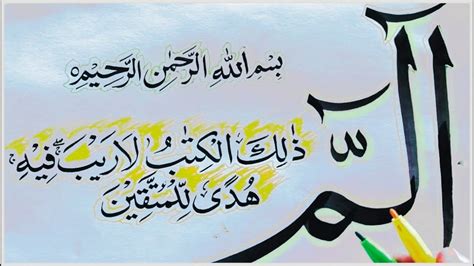 بِسْمِ اللهِ الرَّحْمٰنِ الرَّحِيْمِ
الٓمّٓ
ذٰلِكَ الْكِتٰبُ لَا رَيْبَ ۛ فِيْهِ ۛ
هُدًى لِّلْمُتَّقِيْنَ